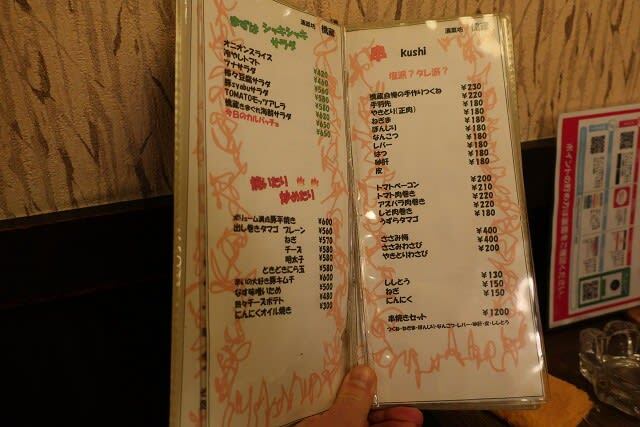 酒菜坊 優蔵
まずは シャキシャキ
サラダ
オニオンスライス
冷やしトマト ¥420
ツナサラダ ¥480
梅々豆腐サラダ ¥560
豚syabuサラダ ¥580
TOMATOモッツアレラ ¥580
優蔵きまぐれ海鮮サラダ ¥630
今日のカルパッチョ ¥650
焼いたり
炒めたり
ボリューム満点豚平焼き ¥600
出し巻きタマゴ プレーン ¥560
ねぎ ¥570
チーズ ¥580
明太子 ¥580
ときどきにら玉 ¥580
幸いの大好き豚キムチ ¥600
なす味噌いため ¥500
熱々チーズポテト ¥480
にんにくオイル焼き ¥300
酒菜坊 優蔵
串 kushi
塩派？タレ派？
優蔵自慢の手作りつくね ¥230
手羽先 ¥220
やきとり(正肉) ¥180
ねぎま ¥180
ぼんじり ¥180
なんこつ ¥180
レバー ¥180
はつ ¥180
砂肝 ¥180
皮
トマトベーコン ¥200
トマト肉巻き ¥210
アスパラ肉巻き ¥220
しそ肉巻き ¥220
うずらタマゴ ¥180
ささみ梅 ¥400
ささみわさび ¥400
やきとりわさび ¥200
ししとう ¥130
ねぎ ¥150
にんにく ¥150
串焼きセット ¥1200
つくね・ねぎま・ぼんじり・なんこつ・レバー・砂肝・皮・ししとう